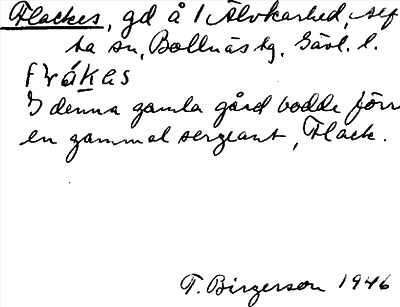 Flackes, gd å 1 Älvkarhed, Alf
ta sn, Bollnäs tg. Gävl. l.
I denna gamla gård bodde förr
en gammal sergeant, Flack.
T. Birgerson 1946